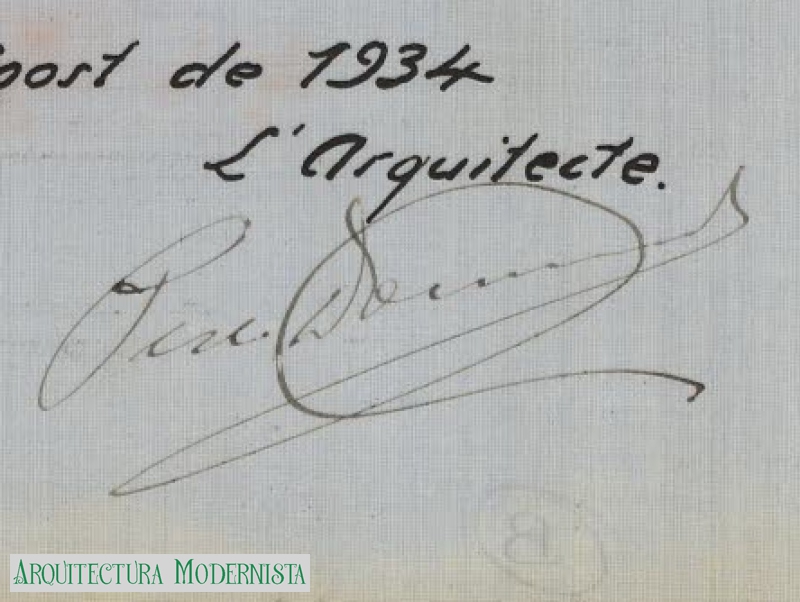 de 1934
L'Arquitecte.
Pere Domènech
B
ARQUITECTURA MODERNISTA